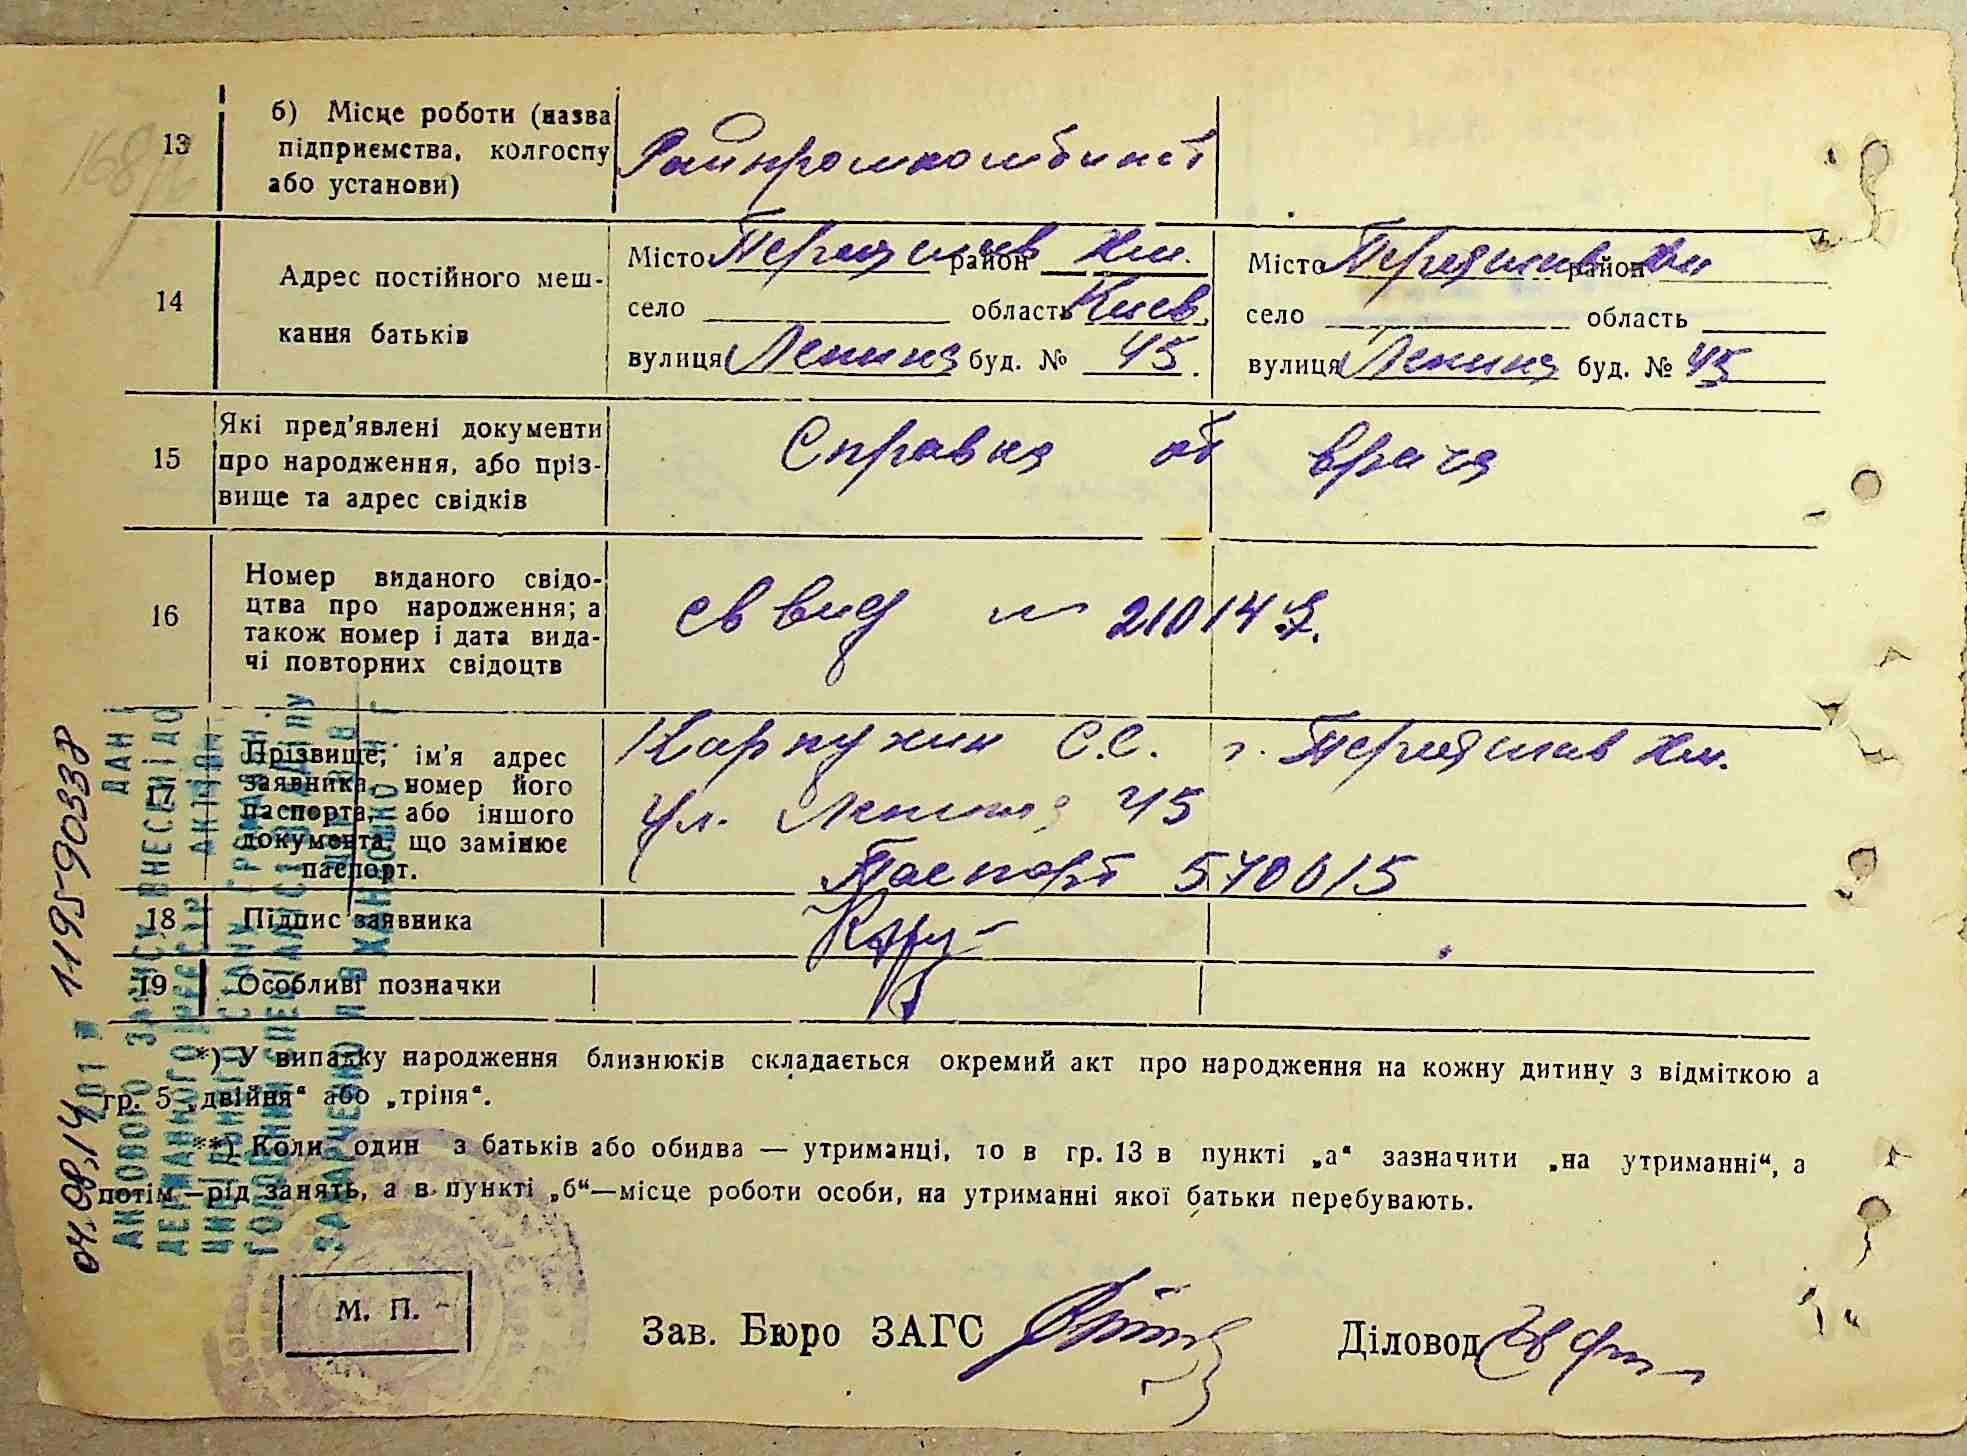 168/6
13
б) Місце роботи (назва
підприємства, колгоспу
або установи)
Райпромкомбинат
14
Адрес постійного меш-
кання батьків
Місто Переяслав район Хм.
село область Киев.
вулиця Ленина буд. № 45.
Місто Переяслав район Хм
село область
вулиця Ленина буд. № 45
15
Які пред'явлені документи
про народження, або пріз-
вище та адрес свідків
Справка от врача
16
Номер виданого свідо-
цтва про народження; а
також номер і дата вида-
чі повторних свідоцтв
Св вид № 210147.
17
Прізвище, ім'я адрес
заявника, номер його
паспорта, або іншого
документа, що замінює
паспорт.
Карпухин С.С. г. Переяслав Хм.
ул. Ленина 45
Паспорт 570015
18
Підпис заявника
19
Особливі позначки
*) У випадку народження близнюків складається окремий акт про народження на кожну дитину з відміткою а
гр. 5 „двійня“ або „тріня“.
**) Коли один з батьків або обидва — утриманці, то в гр. 13 в пункті „а“ зазначити „на утриманні“, а
потім—рід занять, а в пункті „б“—місце роботи особи, на утриманні якої батьки перебувають.
М. П.
Зав. Бюро ЗАГС
Діловод
04.08.14 201 р 1195590338
ДАНІ
АКТОВОГО ЗАПИСУ ВНЕСЕНІ ДО
ДЕРЖАВНОГО РЕЄСТРУ АКТІВ
ЦИВІЛЬНОГО СТАНУ ГРОМАДЯН.
ГОЛОВНИЙ СПЕЦІАЛІСТ